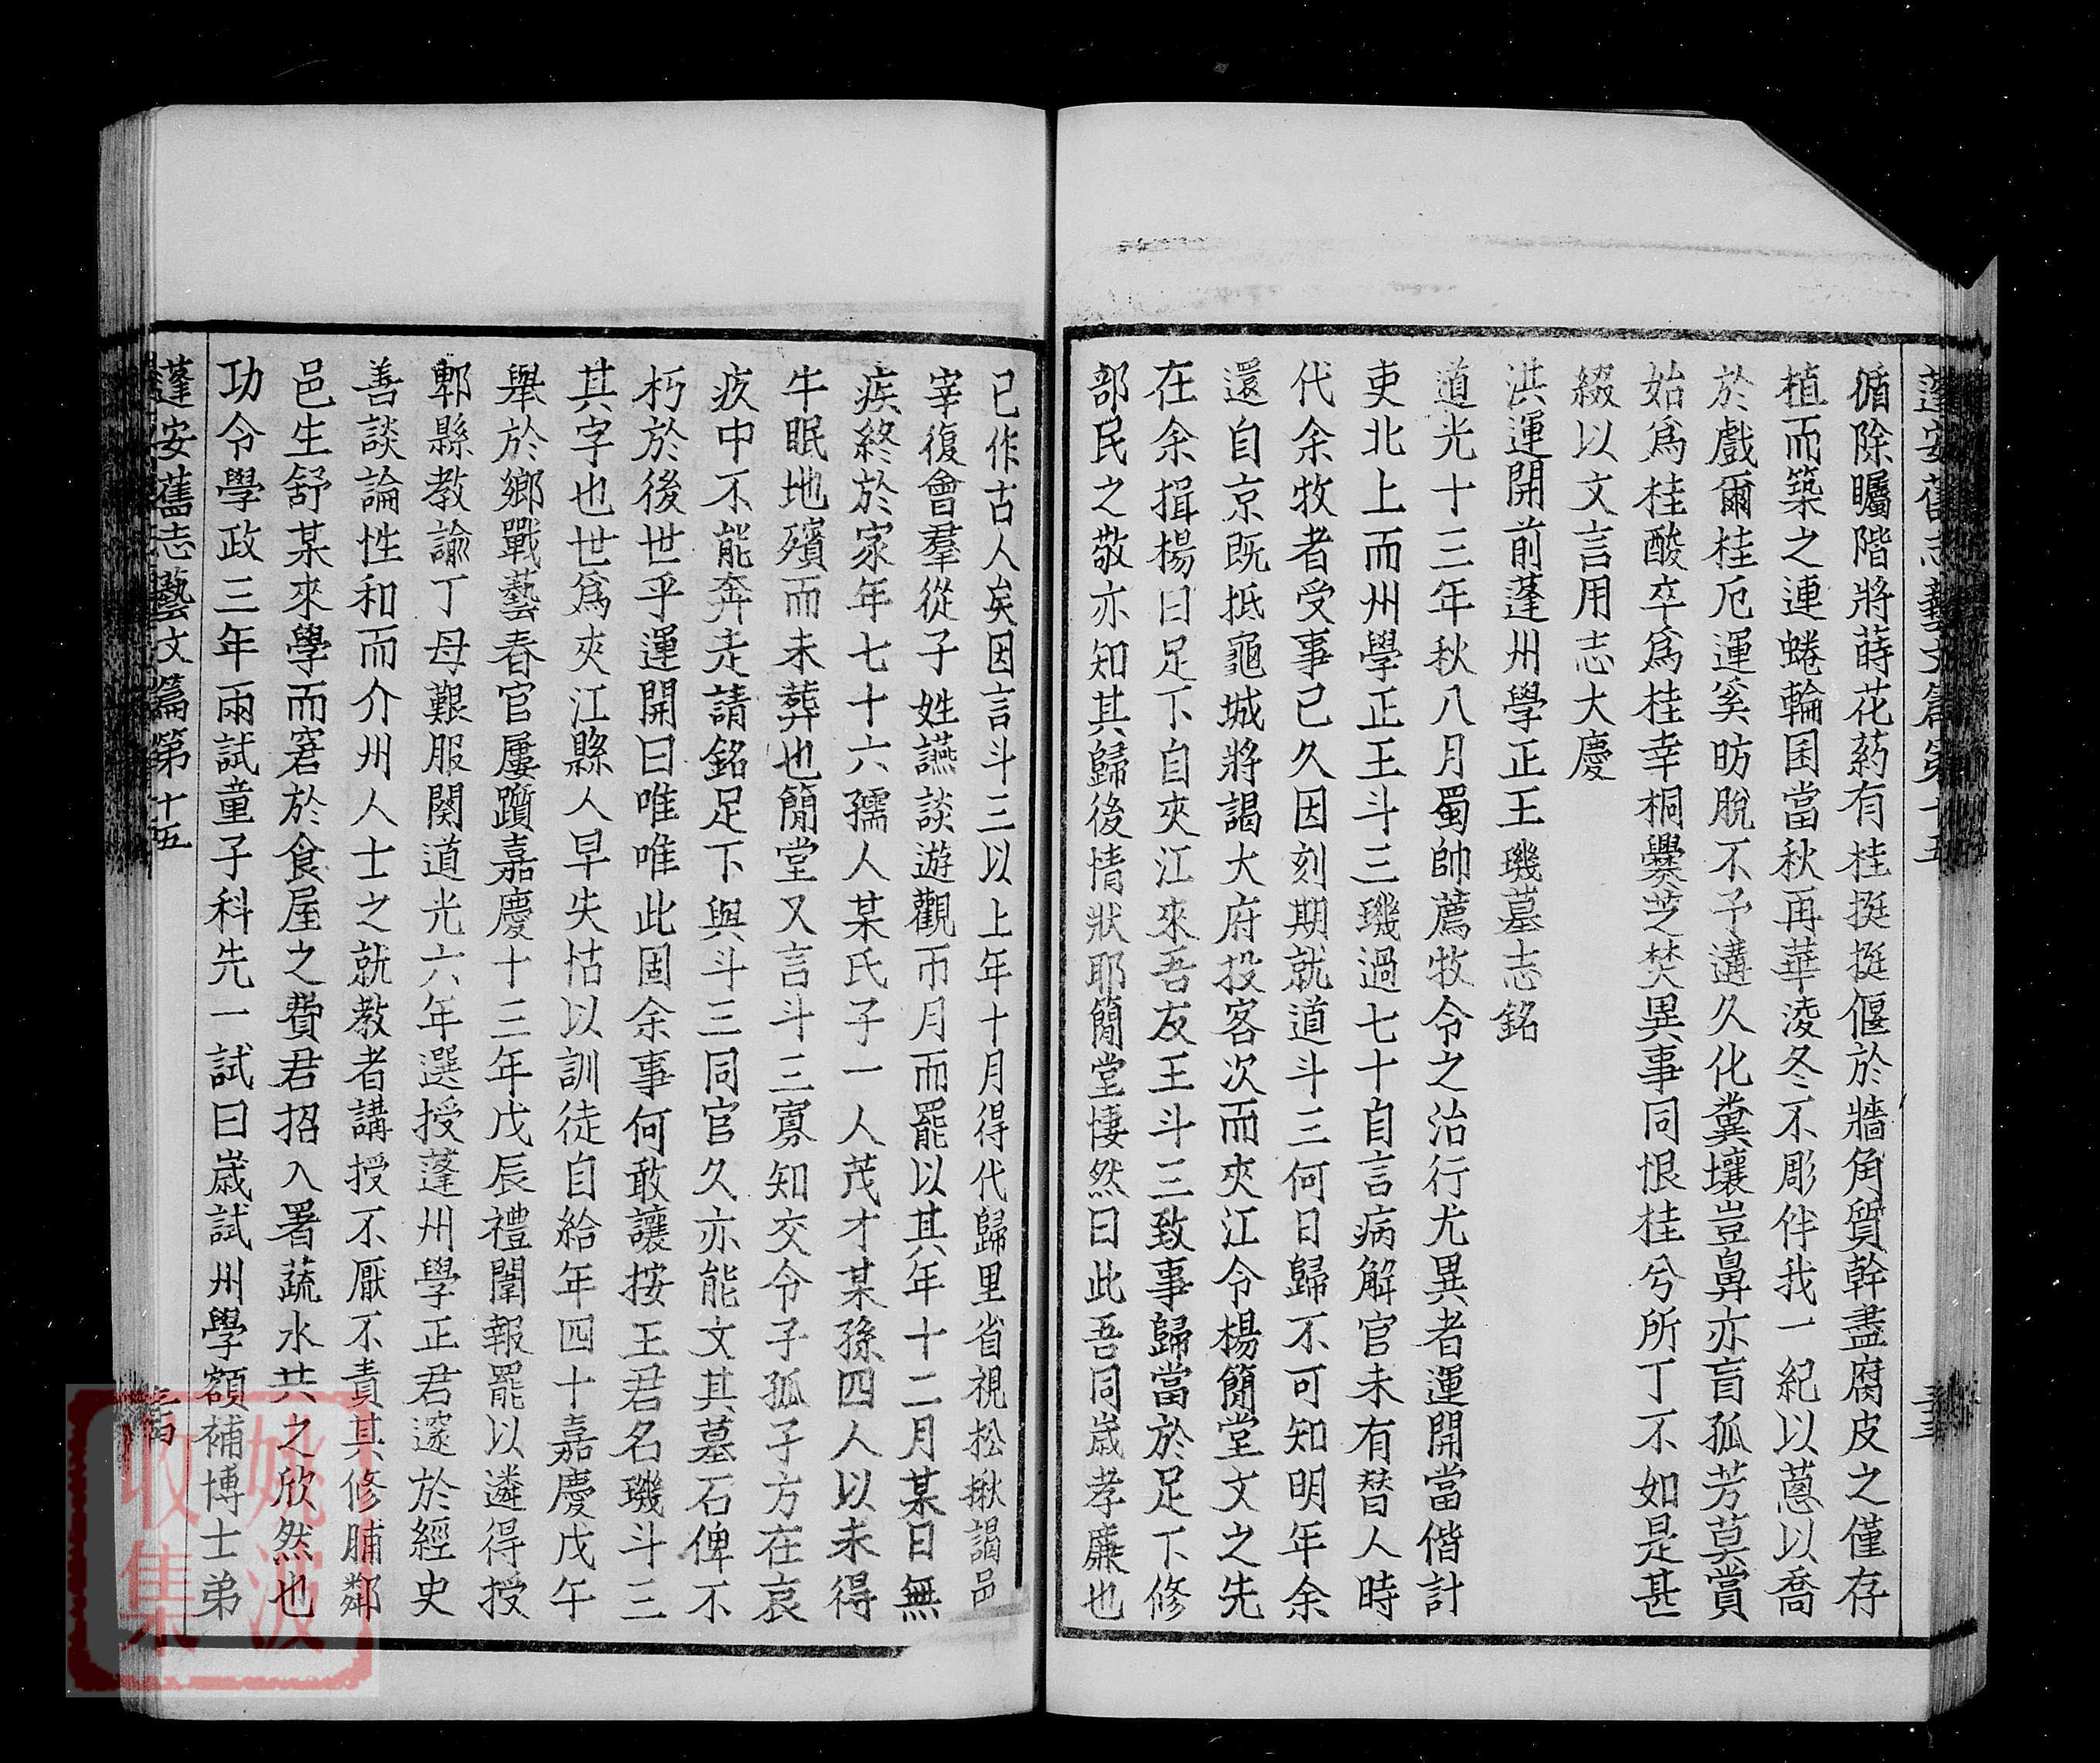 蓬安舊志藝文篇第十五
循除矚階將蒔花葯有桂挺挺偃於牆角質幹盡腐皮之僅存
植而築之連蜷輪囷當秋再華淩冬不彫伴我一紀以蔥以喬
於戲爾桂厄運奚昉脫不予遘久化糞壤豈鼻亦盲孤芳莫賞
始爲桂酸卒爲桂幸桐爨芝焚異事同恨桂兮所丁不如是甚
綴以文言用志大慶
洪運開前蓬州學正王璣墓志銘
道光十三年秋八月蜀帥薦牧令之治行尤異者運開當偕計
吏北上而州學正王斗三璣過七十自言病解官未有替人時
代余牧者受事已久因刻期就道斗三何日歸不可知明年余
還自京既抵龜城將謁大府投客次而夾江令楊簡堂文之先
在余揖楊曰足下自夾江來吾友王斗三致事歸當於足下修
部民之敬亦知其歸後情狀耶簡堂悽然曰此吾同歲孝廉也
已作古人矣因言斗三以上年十月得代歸里省視松楸謁邑
宰復會羣從子姓讌談遊觀帀月而罷以其年十二月某日無
疾終於家年七十六孺人某氏子一人茂才某孫四人以未得
牛眠地殯而未葬也簡堂又言斗三寡知交令子孤孑方在哀
疚中不能奔走請銘足下與斗三同官久亦能文其墓石俾不
朽於後世乎運開曰唯唯此固余事何敢讓按王君名璣斗三
其字也世爲夾江縣人早失怙以訓徒自給年四十嘉慶戊午
舉於鄉戰藝春官屢躓嘉慶十三年戊辰禮闈報罷以遴得授
鄆縣教諭丁母艱服闋道光六年選授蓬州學正君邃於經史
善談論性和而介州人士之就教者講授不厭不責其修脯鄰
邑生舒某來學而窘於食屋之費君招入署蔬水共之欣然也
功令學政三年兩試童子科先一試曰歲試州學額補博士弟
蓬安舊志藝文篇第十五
姚波
收集